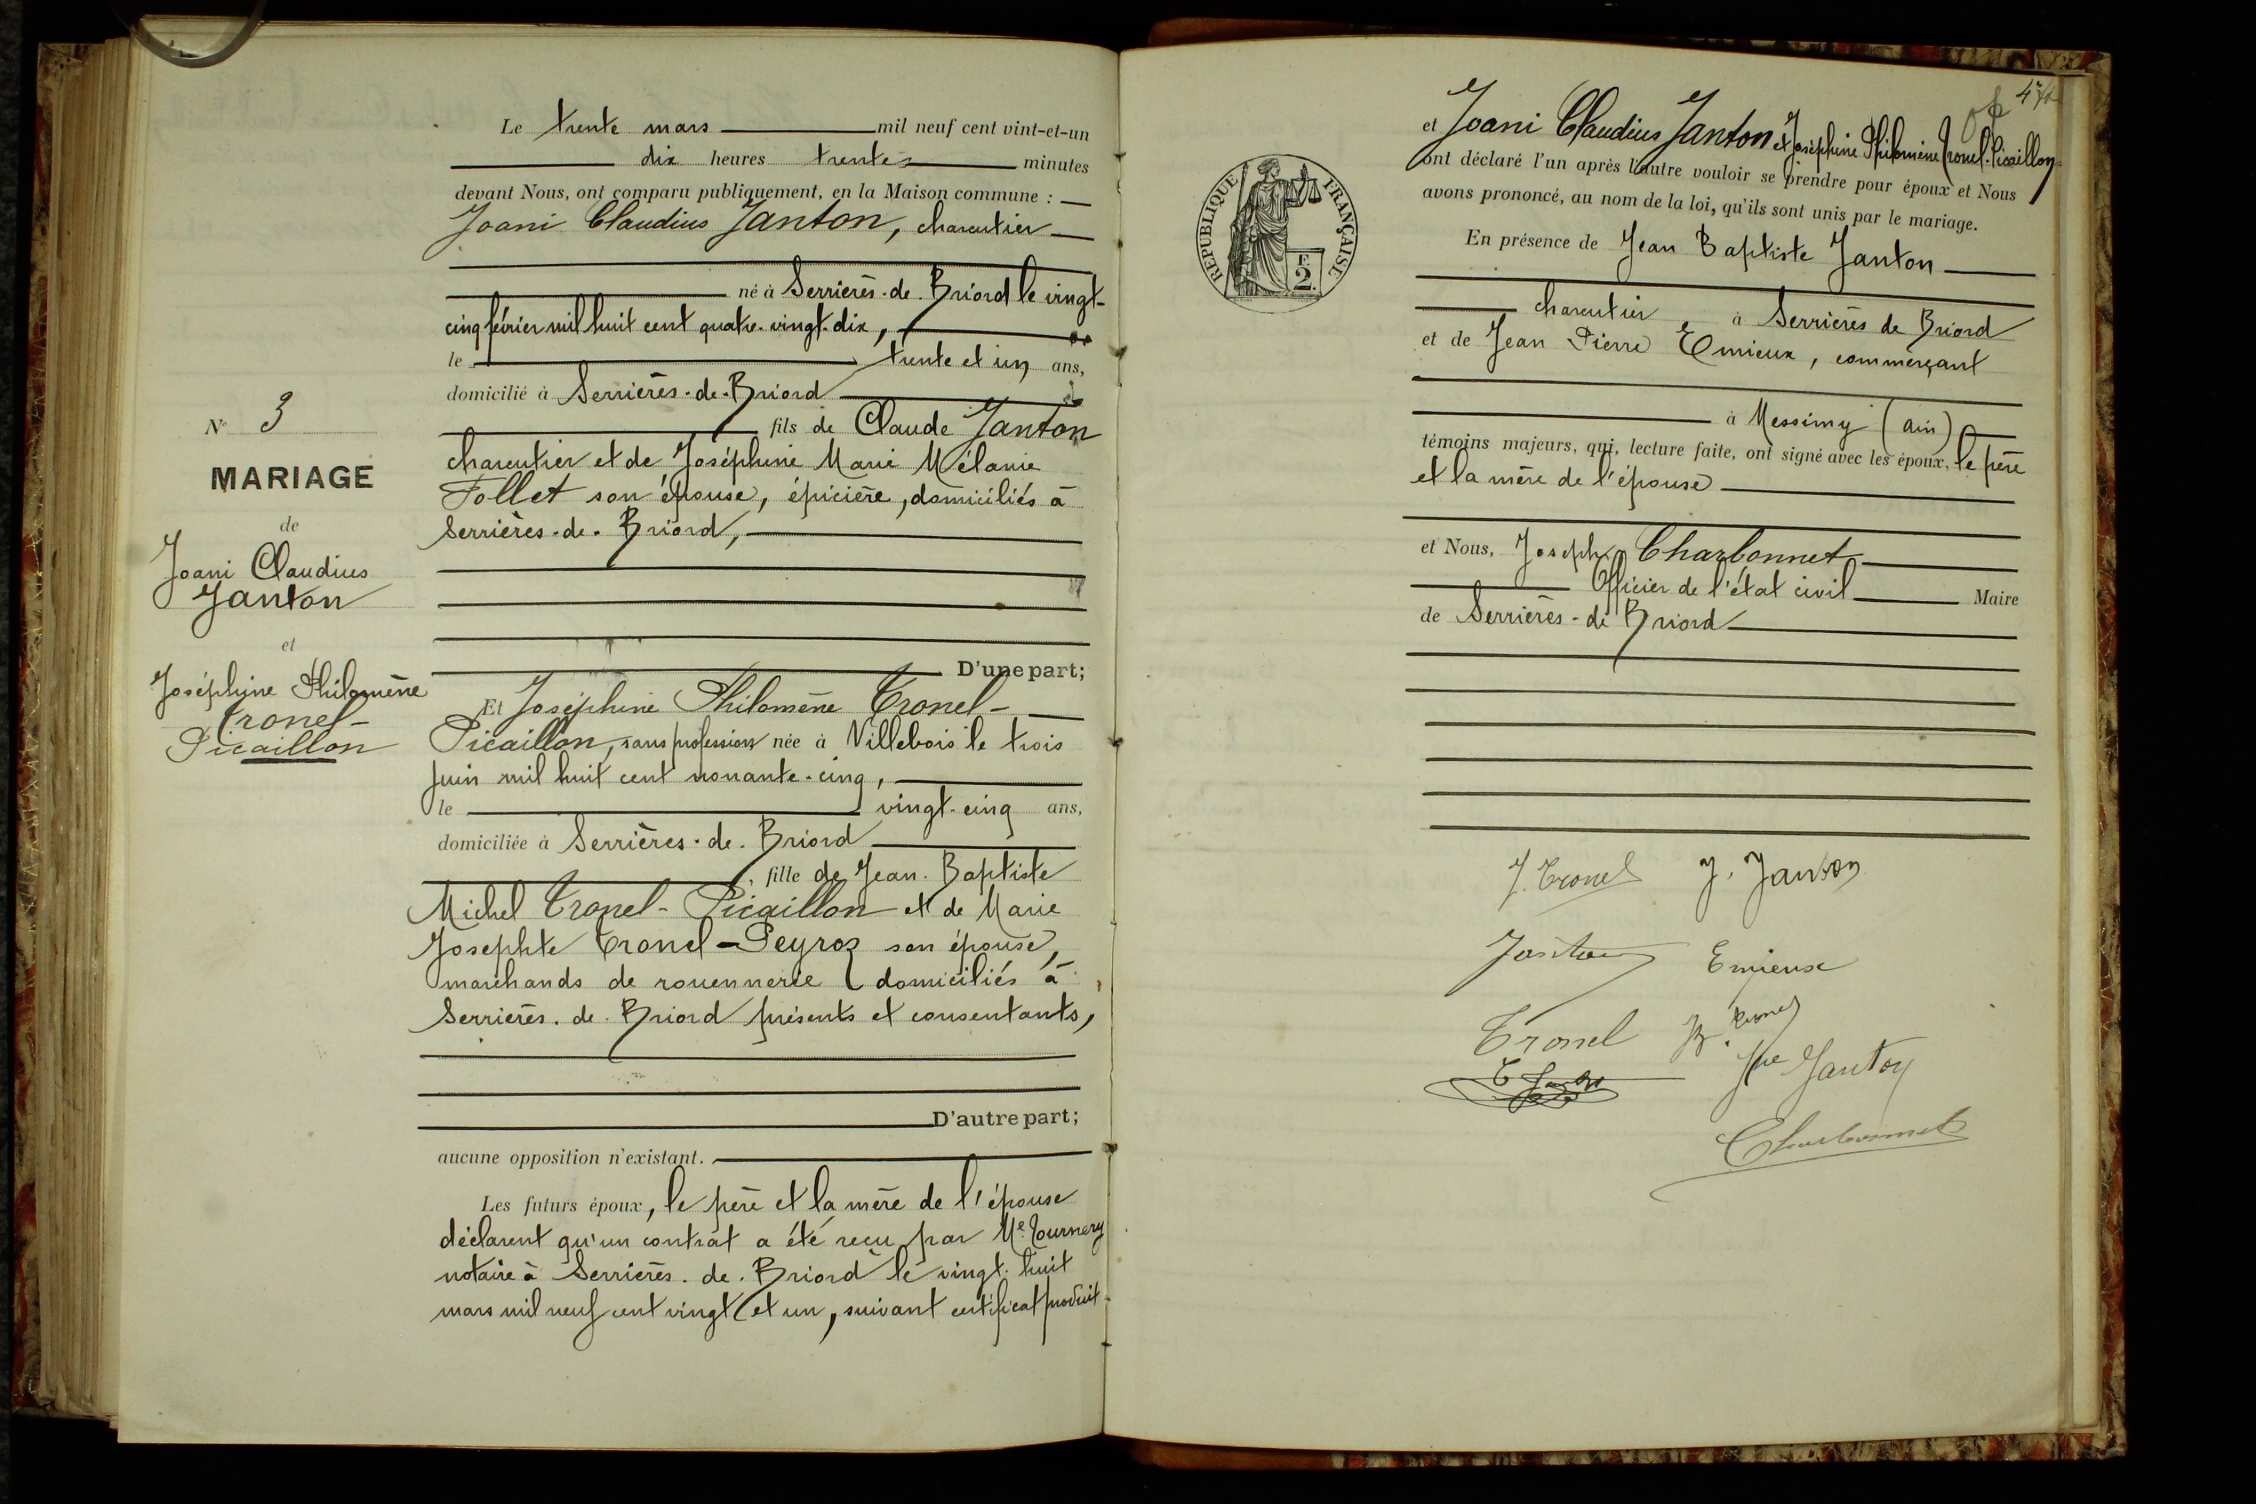 Le trente mars mil neuf cent vint-et-un
dix heures trente minutes
devant Nous, ont comparu publiquement, en la Maison commune :
Joani Claudius Janton, charcutier
né à Serrières-de-Briord le vingt-
cinq février mil huit cent quatre-vingt-dix,
le trente et un ans,
domicilié à Serrières-de-Briord
fils de Claude Janton
charcutier et de Joséphine Marie Mélanie
Follet son épouse, épicière, domiciliés à
Serrières-de-Briord,
D'une part;
Et Joséphine Philomène Tronel-
Picaillon, sans profession née à Villebois le trois
juin mil huit cent nonante-cinq,
le vingt-cinq ans,
domiciliée à Serrières-de-Briord
, fille de Jean-Baptiste
Michel Tronel-Picaillon et de Marie
Josephte Tronel-Peyroz son épouse,
marchands de rouennerie domiciliés à
Serrières-de-Briord présents et consentants,
D'autre part;
aucune opposition n'existant.
Les futurs époux, le père et la mère de l'épouse
déclarent qu'un contrat a été reçu par Me Tournery
notaire à Serrières-de-Briord le vingt-huit
mars mil neuf cent vingt et un, suivant certificat produit
N° 3
MARIAGE
de
Joani Claudius
Janton
et
Joséphine Philomène
Tronel-
Picaillon
47
RÉPUBLIQUE FRANÇAISE
F.
2.
et Joani Claudius Janton et Joséphine Philomène Tronel-Picaillon
ont déclaré l'un après l'autre vouloir se prendre pour époux et Nous
avons prononcé, au nom de la loi, qu'ils sont unis par le mariage.
En présence de Jean Baptiste Janton
charcutier à Serrières de Briord
et de Jean Pierre Emieux, commerçant
à Messimy (Ain)
témoins majeurs, qui, lecture faite, ont signé avec les époux, le père
et la mère de l'épouse
et Nous, Joseph Charbonnet
Officier de l'état civil Maire
de Serrières-de-Briord
J. Tronel J. Janton
Janton Emieux
Tronel
Jne Janton
Charbonnet